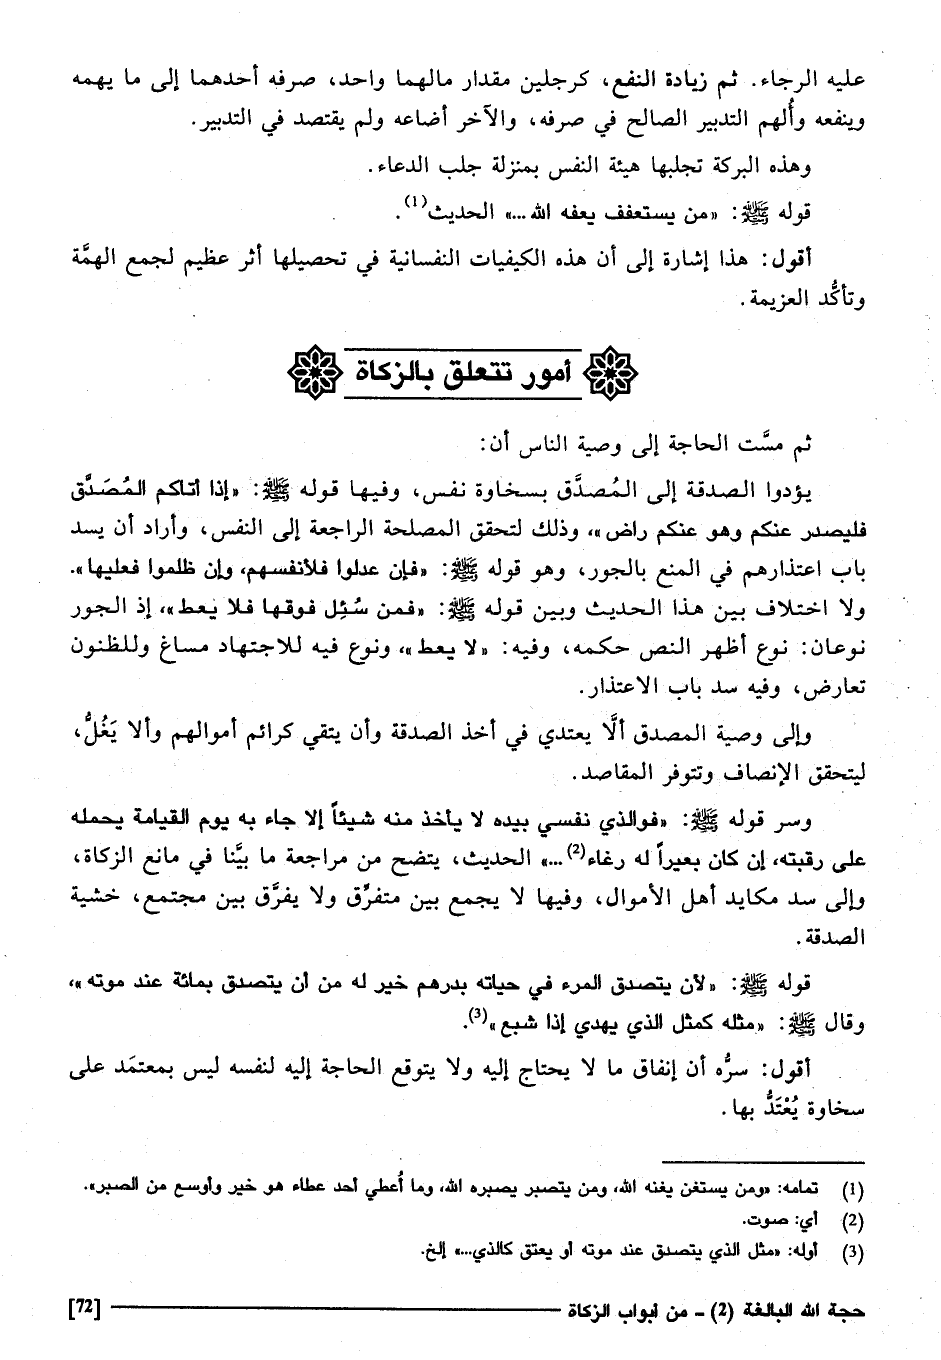 عليه الرجاء. ثم زيادة النفع، كرجلين مقدار مالهما واحد، صرفه أحدهما إلى ما يهمه
وينفعه وأُلهم التدبير الصالح في صرفه، والآخر أضاعه ولم يقتصد في التدبير.
وهذه البركة تجلبها هيئة النفس بمنزلة جلب الدعاء.
قوله ﷺ: «من يستعفف يعفه الله...» الحديث(1).
أقول: هذا إشارة إلى أن هذه الكيفيات النفسانية في تحصيلها أثر عظيم لجمع الهمَّة
وتأكُّد العزيمة.
أمور تتعلق بالزكاة
ثم مسَّت الحاجة إلى وصية الناس أن:
يؤدوا الصدقة إلى المُصدَّق بسخاوة نفس، وفيها قوله ﷺ: «إذا أتاكم المُصَدَّق
فليصدر عنكم وهو عنكم راض»، وذلك لتحقق المصلحة الراجعة إلى النفس، وأراد أن يسد
باب اعتذارهم في المنع بالجور، وهو قوله ﷺ: «فإن عدلوا فلأنفسهم، وإن ظلموا فعليها».
ولا اختلاف بين هذا الحديث وبين قوله ﷺ: «فمن سُئِل فوقها فلا يعط»، إذ الجور
نوعان: نوع أظهر النص حكمه، وفيه: «لا يعط»، ونوع فيه للاجتهاد مساغ وللظنون
تعارض، وفيه سد باب الاعتذار.
وإلى وصية المصدق ألَّا يعتدي في أخذ الصدقة وأن يتقي كرائم أموالهم وألا يَغُلُّ،
ليتحقق الإنصاف وتتوفر المقاصد.
وسر قوله ﷺ: «فوالذي نفسي بيده لا يأخذ منه شيئاً إلا جاء به يوم القيامة يحمله
على رقبته، إن كان بعيراً له رغاء(2)...» الحديث، يتضح من مراجعة ما بيَّنا في مانع الزكاة،
وإلى سد مكايد أهل الأموال، وفيها لا يجمع بين متفرِّق ولا يفرَّق بين مجتمع، خشية
الصدقة.
قوله ﷺ: «لأن يتصدق المرء في حياته بدرهم خير له من أن يتصدق بمائة عند موته»،
وقال ﷺ: «مثله كمثل الذي يهدي إذا شبع»(3).
أقول: سرُّه أن إنفاق ما لا يحتاج إليه ولا يتوقع الحاجة إليه لنفسه ليس بمعتمَد على
سخاوة يُعْتَدُّ بها.
(1) تمامه: «ومن يستغن يغنه الله، ومن يتصبر يصبره الله، وما أُعطي أحد عطاء هو خير وأوسع من الصبر».
(2) أي: صوت.
(3) أوله: «مثل الذي يتصدق عند موته أو يعتق كالذي...» إلخ.
حجة الله البالغة (2) - من أبواب الزكاة [72]